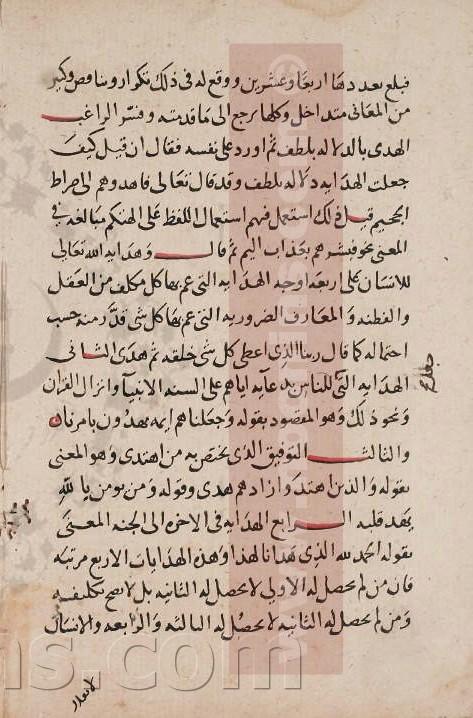 فبلغ بعددها اربعا وعشرين ووقع له في ذلك تكرار وتناقض وكثير
من المعاني متداخل وكلها يرجع الى ما قدمته وفسر الراغب
الهدى بالدلاله بلطف ثم اورد على نفسه فقال ان قيل كيف
جعلت الهدايه دلاله بلطف وقد قال تعالى فاهدوهم الى صراط
الجحيم قيل ذلك استعمل فيهم استعمال اللفظ على التهكم مبالغه في
المعنى نحو فبشرهم بعذاب اليم ثم قال وهدايه الله تعالى
للانسان على اربعه اوجه الهدايه التي عم بها كل مكلف من العقل
والفطنه والمعارف الضروريه التي عم بها كل شي قدر منه حسب
احتماله كما قال ربنا الذي اعطى كل شي خلقه ثم هدى الثاني
الهدايه التي للناس بدعايه اياهم على السنه الانبيا وانزال القران
ونحو ذلك وهو المقصود بقوله وجعلناهم ايمه يهدون بامرنا
والثالث التوفيق الذي يختص به من اهتدى وهو المعنى
بقوله والذين اهتدوا زادهم هدى وقوله ومن يومن بالله
يهد قلبه الرابع الهدايه في الاخره الى الجنه المعنى
بقوله الحمد لله الذي هدانا لهذا وهذه الهدايات الاربع مرتبه
فان من لم يحصل له الاولى لا يحصل له الثانيه بل لا يصح تكليفه
ومن لم يحصل له الثانيه لا يحصل له الثالثه والرابعه والانسان
لا يقدر
ns.com